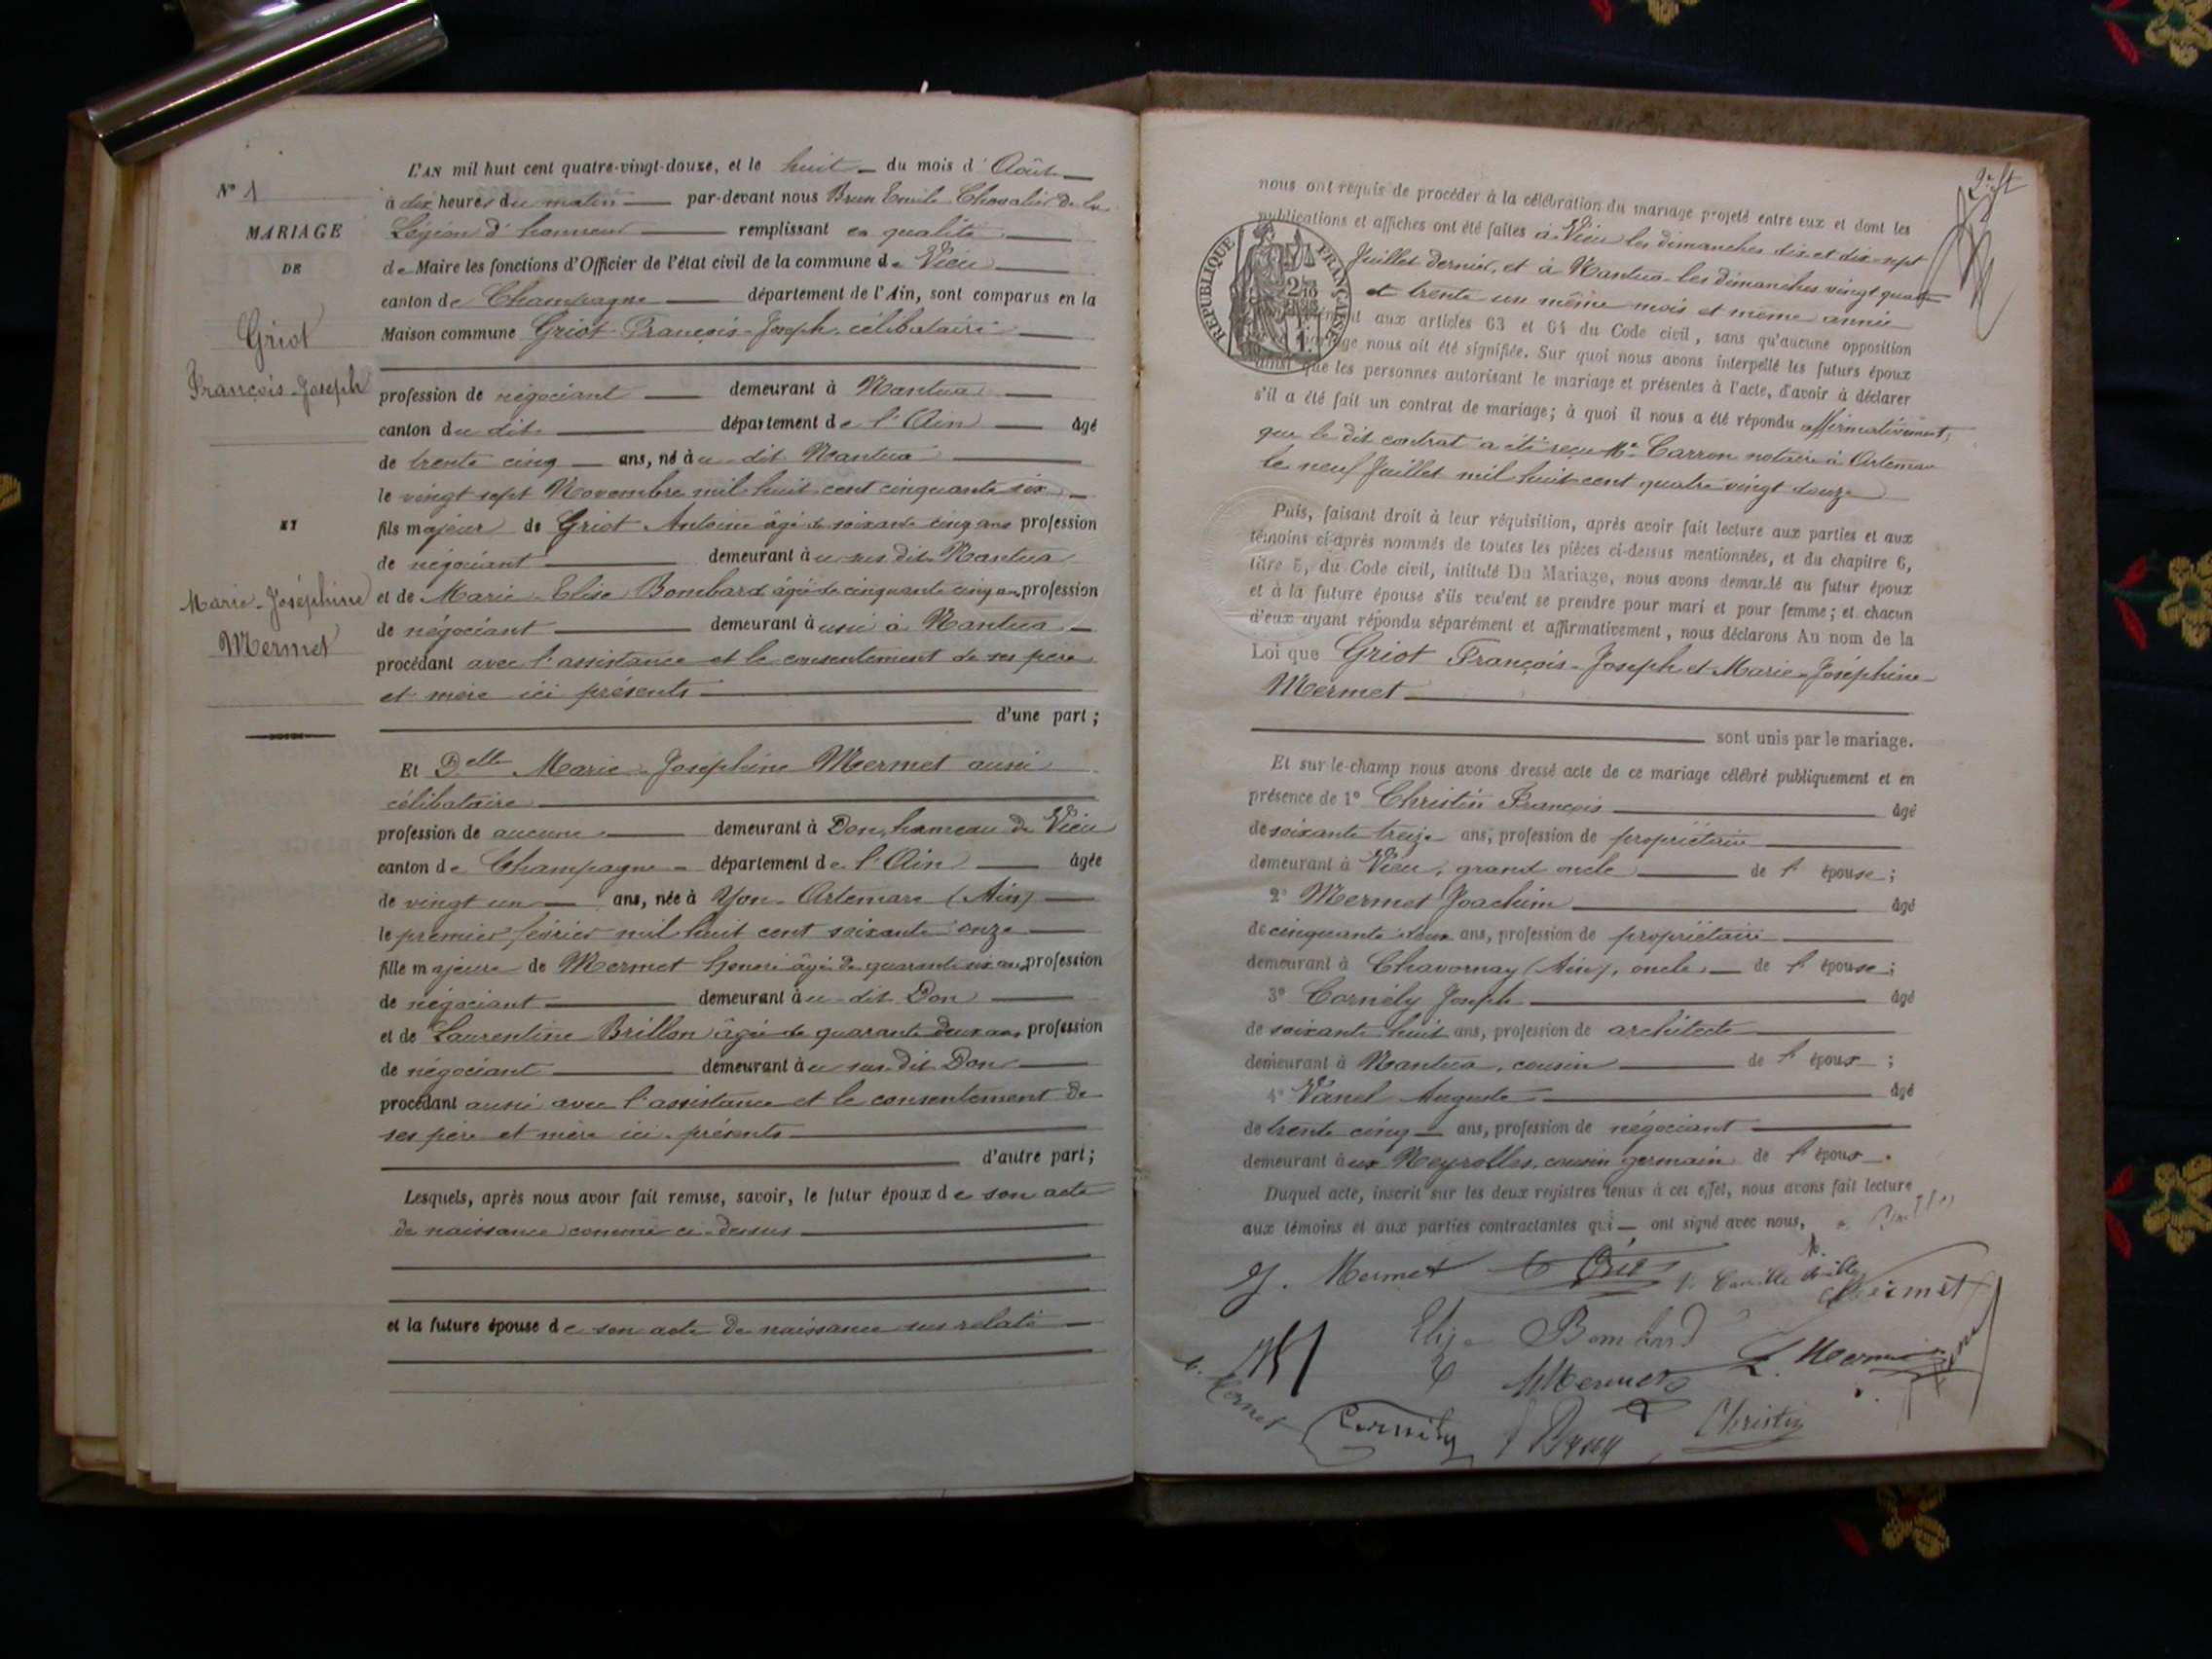 N° 1
MARIAGE
DE
Griot
François-Joseph
ET
Marie-Joséphine
Mermet
L'AN mil huit cent quatre-vingt-douze, et le huit du mois d'Août
à dix heures du matin par-devant nous Brun Emile Chevalier de la
Légion d'honneur remplissant en qualité
de Maire les fonctions d'Officier de l'état civil de la commune de Vieu
canton de Champagne département de l'Ain, sont comparus en la
Maison commune Griot François-Joseph, célibataire
profession de négociant demeurant à Nantua
canton du dit département de l'Ain âgé
de trente cinq ans, né à u dit Nantua
le vingt sept Novembre mil huit cent cinquante six
fils majeur de Griot Antoine âgé de soixante cinq ans profession
de négociant demeurant à u sus dit Nantua
et de Marie-Elise Bombard âgée de cinquante cinq ans profession
de négociant demeurant aussi à Nantua
procédant avec l'assistance et le consentement de ses père
et mère ici présents
d'une part ;
Et Delle Marie-Joséphine Mermet aussi
célibataire
profession de aucune demeurant à Don, hameau de Vieu
canton de Champagne département de l'Ain âgée
de vingt un ans, née à Yon-Artemare (Ain)
le premier février mil huit cent soixante onze
fille majeure de Mermet Henri âgé de quarante six ans profession
de négociant demeurant à u dit Don
et de Laurentine Brillon âgée de quarante deux ans profession
de négociant demeurant à u sus dit Don
procédant aussi avec l'assistance et le consentement de
ses père et mère ici présents
d'autre part ;
Lesquels, après nous avoir fait remise, savoir, le futur époux de son acte
de naissance comme ci-dessus
et la future épouse de son acte de naissance sus relaté
nous ont requis de procéder à la célébration du mariage projeté entre eux et dont les
publications et affiches ont été faites à Vieu les dimanches dix et dix-sept
Juillet dernier, et à Nantua les dimanches vingt quatre
et trente un même mois et même année
RÉPUBLIQUE FRANÇAISE
aux articles 63 et 64 du Code civil, sans qu'aucune opposition
nous ait été signifiée. Sur quoi nous avons interpellé les futurs époux
ainsi que les personnes autorisant le mariage et présentes à l'acte, d'avoir à déclarer
s'il a été fait un contrat de mariage ; à quoi il nous a été répondu affirmativement,
que le dit contrat a été reçu Me Carron notaire à Artemare
le neuf Juillet mil huit cent quatre vingt douze
Puis, faisant droit à leur réquisition, après avoir fait lecture aux parties et aux
témoins ci-après nommés de toutes les pièces ci-dessus mentionnées, et du chapitre 6,
titre 5, du Code civil, intitulé Du Mariage, nous avons demandé au futur époux
et à la future épouse s'ils veulent se prendre pour mari et pour femme ; et chacun
d'eux ayant répondu séparément et affirmativement, nous déclarons Au nom de la
Loi que Griot François-Joseph et Marie-Joséphine
Mermet
sont unis par le mariage.
Et sur-le-champ nous avons dressé acte de ce mariage célébré publiquement et en
présence de 1° Christin François âgé
de soixante treize ans, profession de propriétaire
demeurant à Vieu, grand oncle de l'épouse ;
2° Mermet Joachim âgé
de cinquante deux ans, profession de propriétaire
demeurant à Chavornay (Ain), oncle de l'épouse ;
3° Cornély Joseph âgé
de soixante huit ans, profession de architecte
demeurant à Nantua, cousin de l'époux ;
4° Vanel Auguste âgé
de trente cinq ans, profession de négociant
demeurant aux Neyrolles, cousin germain de l'époux.
Duquel acte, inscrit sur les deux registres tenus à cet effet, nous avons fait lecture
aux témoins et aux parties contractantes qui ont signé avec nous,
J. Mermet
Mermet
Elise Bombard
Mermet
L. Mermet
Cornély
Christin